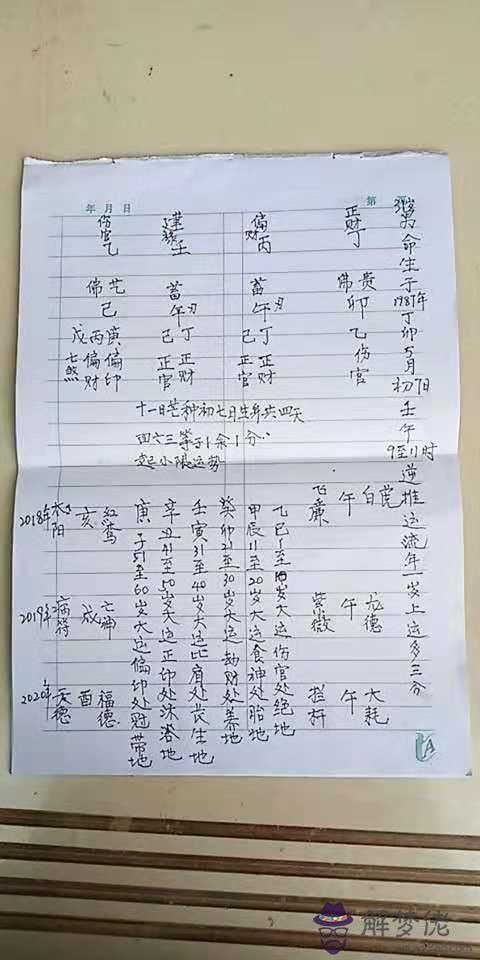 年 月 日
第
命生于1987年丁卯5月初7日壬午9至11时逆推运流年一岁上运多三分
正财丁
贵佛
卯
乙伤官
偏财丙
蓄
午刃
丁正财
己正官
壬
蓄
午刃
丁正财
己正官
伤官乙
艺佛
己
庚偏印
丙偏财
戊七煞
十一日芒种初七日生年共四天
四六三等于1余1分
起小限运势
白虎 午 飞廉
龙德 午 紫微
大耗 午 拦杆
乙巳1至10岁大运伤官处绝地
甲辰11至20岁大运食神处胎地
癸卯21至30岁大运劫财处养地
壬寅31至40岁大运比肩处长生地
辛丑41至50岁大运正印处沐浴地
庚子51至60岁大运偏印处冠带地
2018年太阳 亥 红鸾
2019年病符 戌 亡神
2020年天德 酉 福德
解梦佬